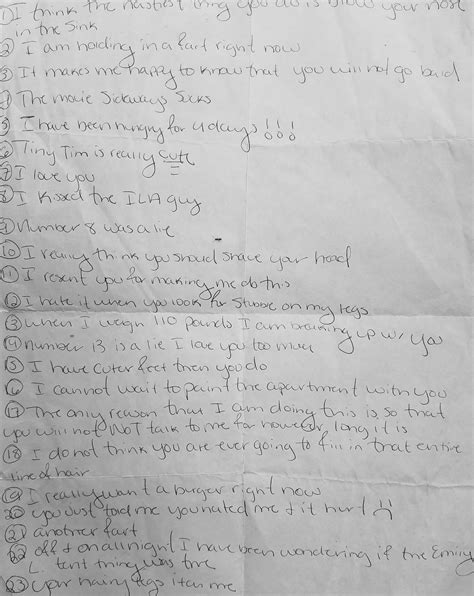 ① I think the nastiest thing you do is blow your nose
in the sink
② I am holding in a fart right now
③ It makes me happy to know that you will not go bald
④ The movie Sideways sucks
⑤ I have been hungry for 4 days!!!
⑥ Tiny Tim is really cute
⑦ I love you
⑧ I kissed the ILA guy
⑨ number 8 was a lie
⑩ I really think you should shave your head
⑪ I resent you for making me do this
⑫ I hate it when you look for stubble on my legs
⑬ when I weigh 110 pounds I am breaking up w/ you
⑭ number 13 is a lie I love you too much
⑮ I have cuter feet then you do
⑯ I cannot wait to paint the apartment with you
⑰ The only reason that I am doing this is so that
you will not NOT talk to me for however long it is
⑱ I do not think you are ever going to fill in that entire
line of hair
⑲ I really want a burger right now
⑳ you just told me you hated me & it hurt :(
㉑ another fart
㉒ off & on all night I have been wondering if the Emily
L. tent thing was true
㉓ your hairy legs itch me